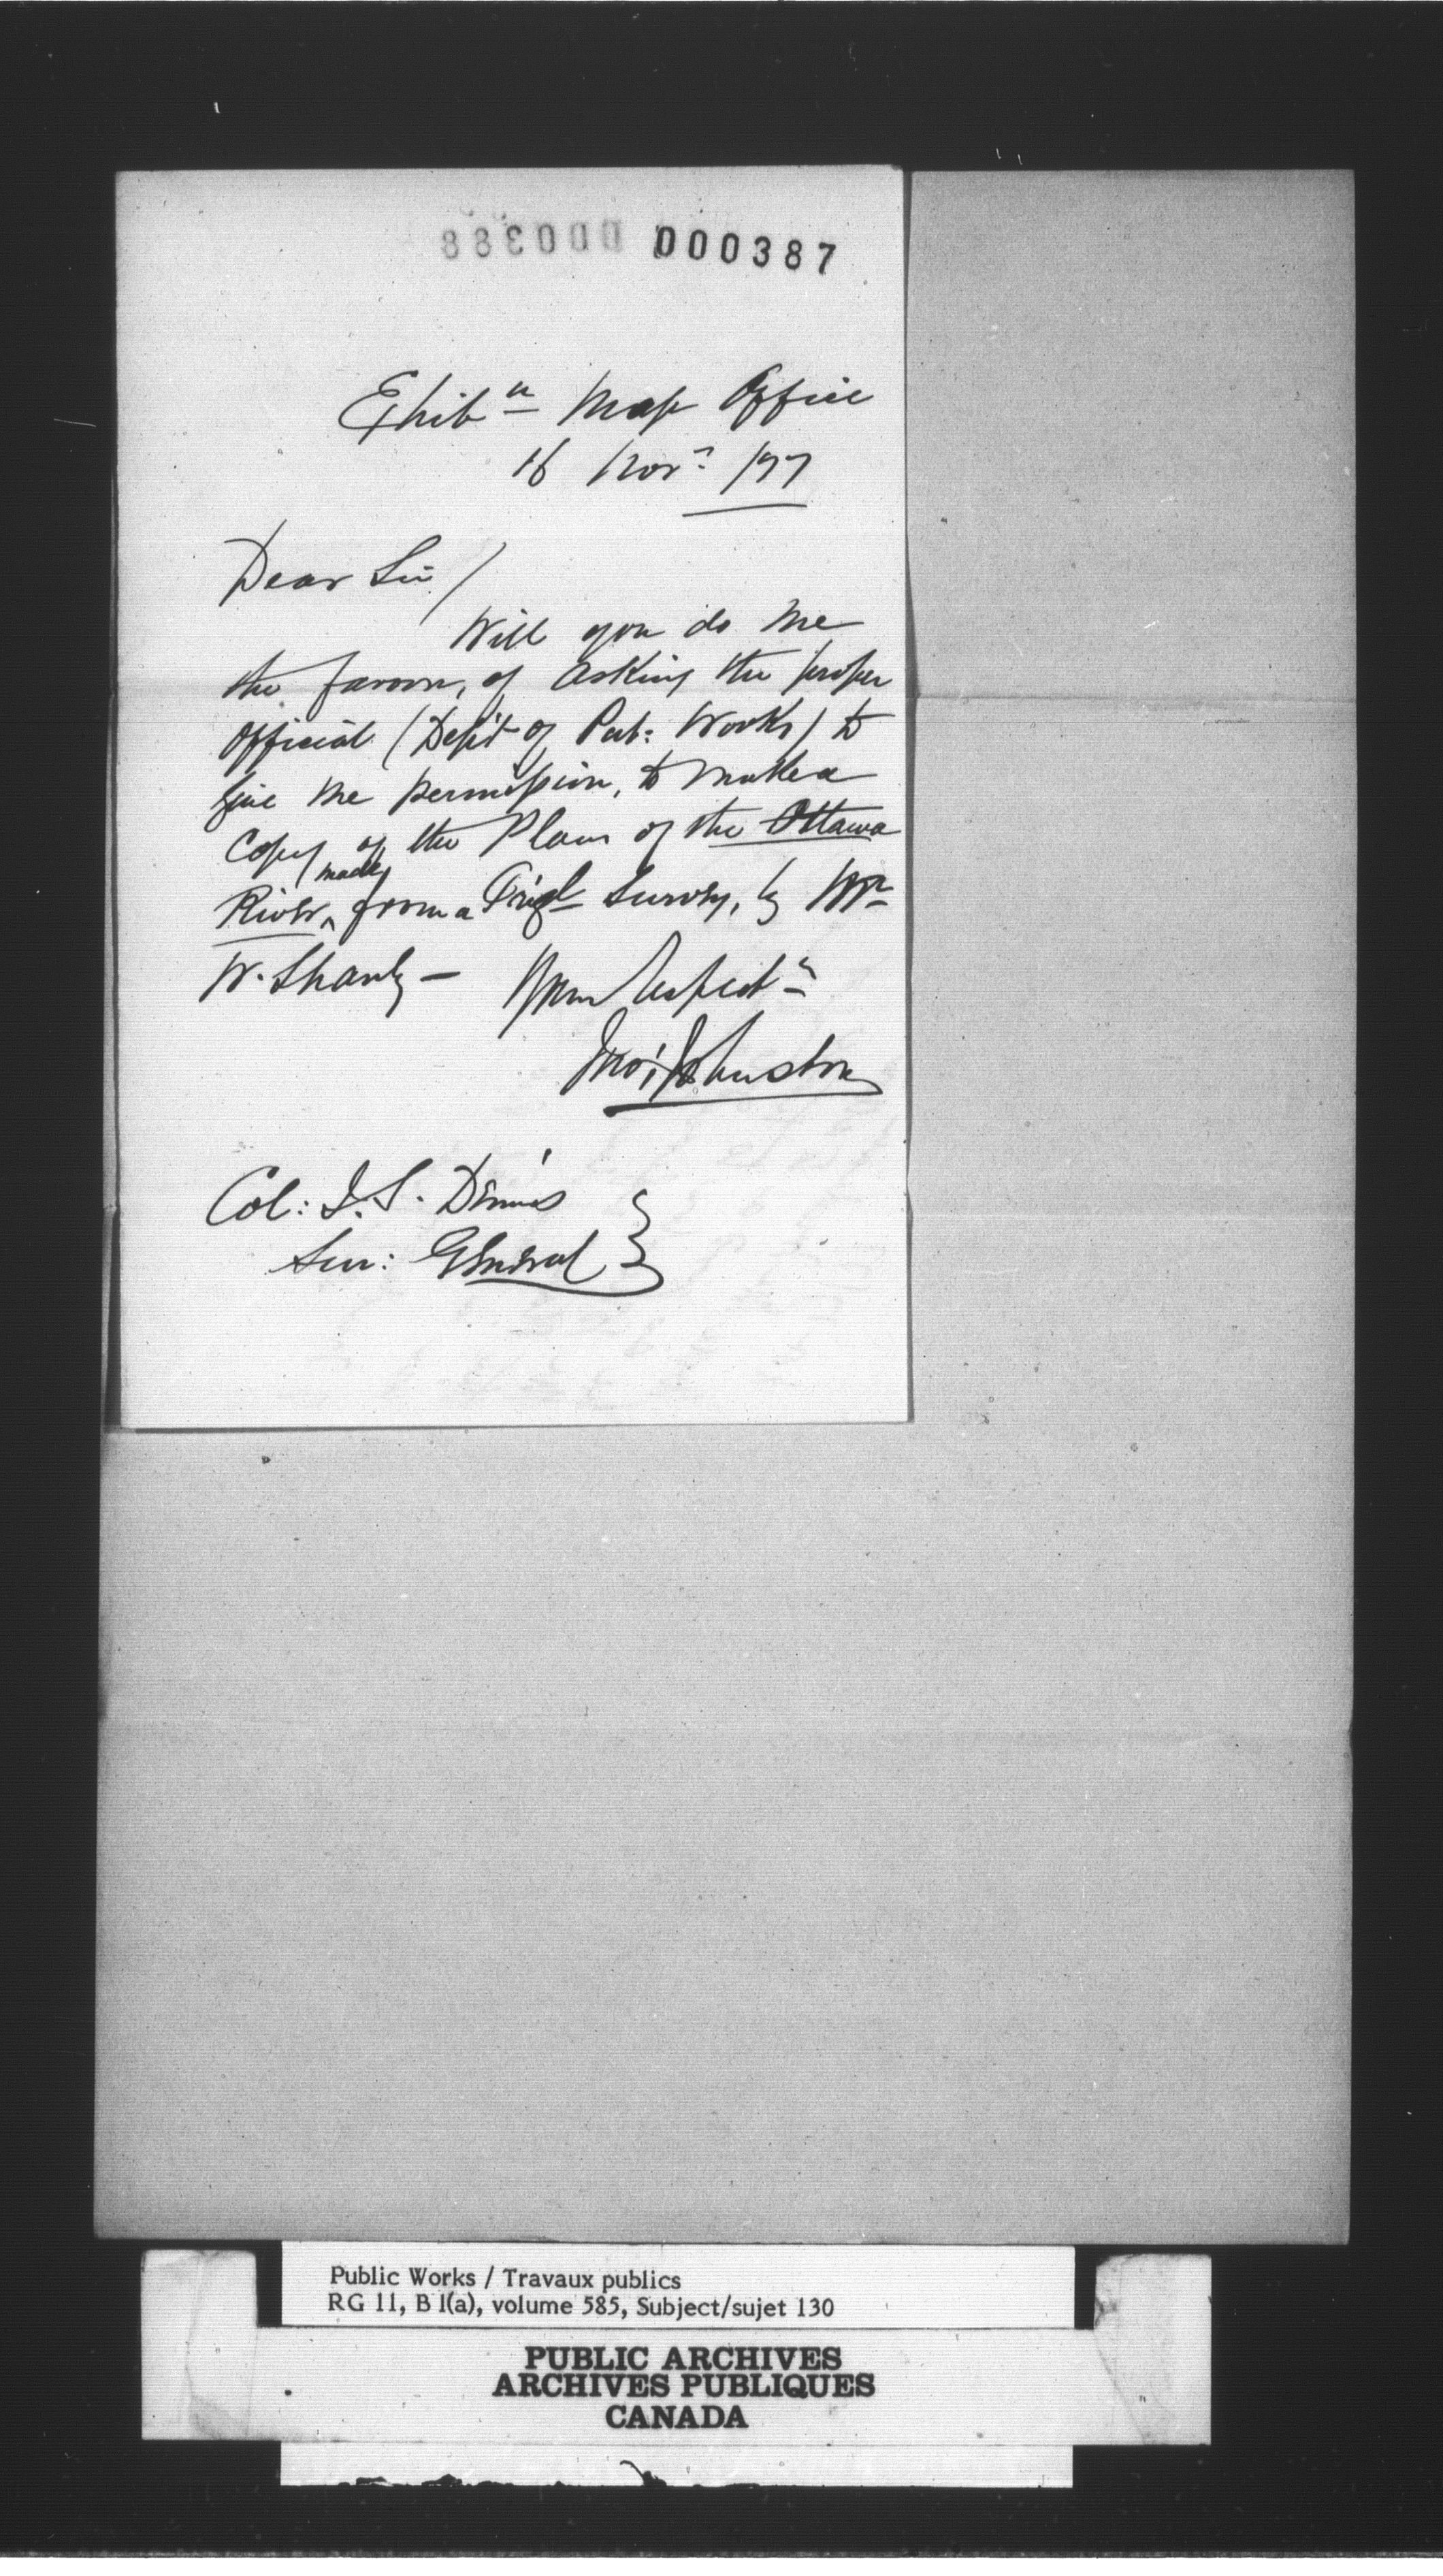 000387
Exhibn Map Office
16 Novr /77
Dear Sir /
Will you do me
the favour, of asking the proper
official (Dep't of Pub: Works) to
give me permission, to make a
Copy of the Plans of the Ottawa
River ^made from a Trigl Survey, by Mr
W. Shanly –
Your Respectn
Jno: Johnston
Col: J. S. Dennis
Sur: General
Public Works / Travaux publics
RG 11, B 1(a), volume 585, Subject/sujet 130
PUBLIC ARCHIVES
ARCHIVES PUBLIQUES
CANADA